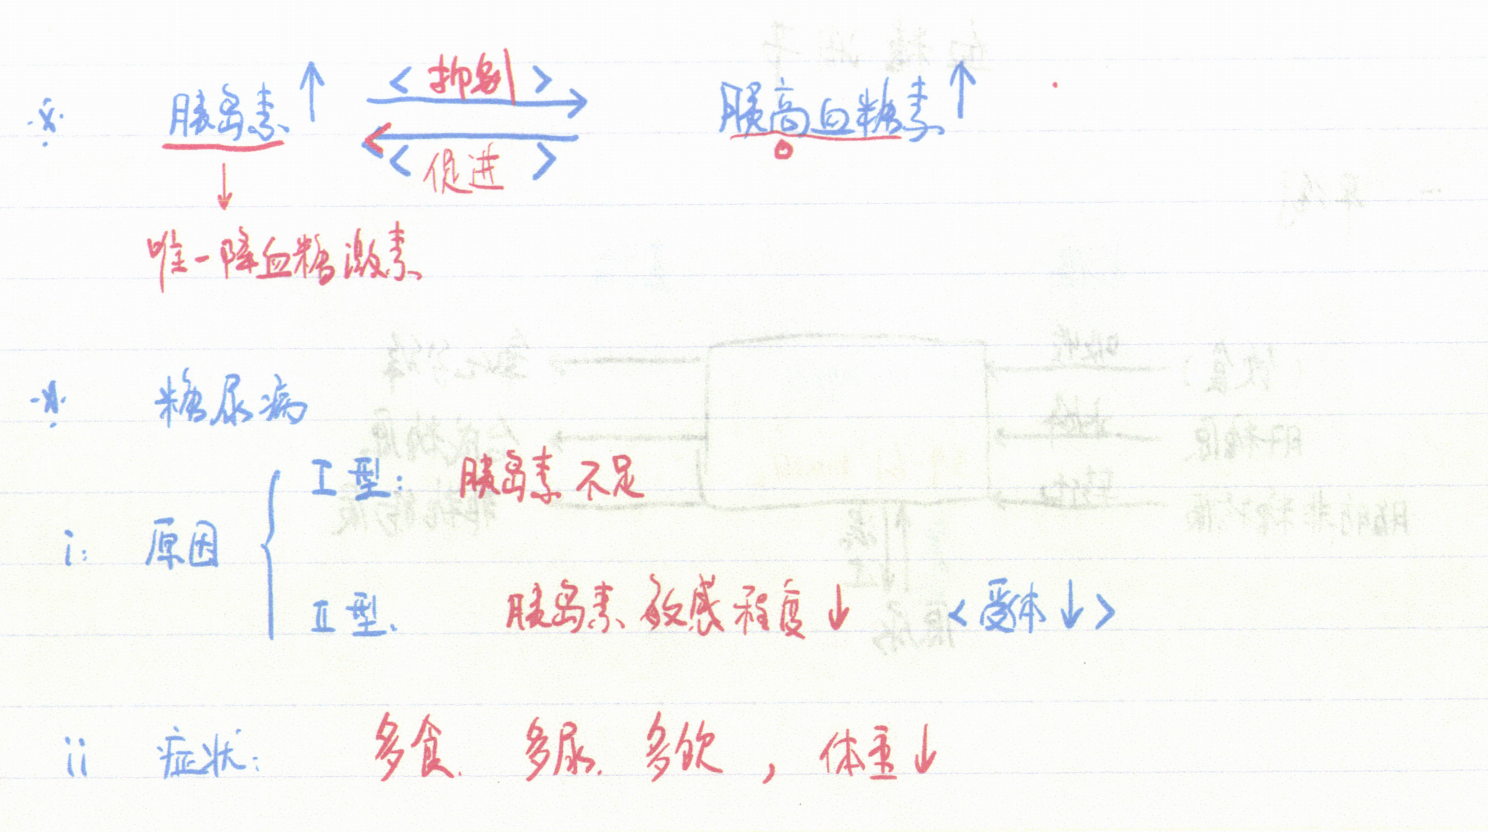 ※ 胰岛素↑ <抑制> 胰高血糖素↑
<促进>
↓
唯一降血糖激素
※ 糖尿病
i: 原因
I型: 胰岛素不足
II型. 胰岛素敏感程度↓ <受体↓>
ii 症状: 多食. 多尿. 多饮, 体重↓